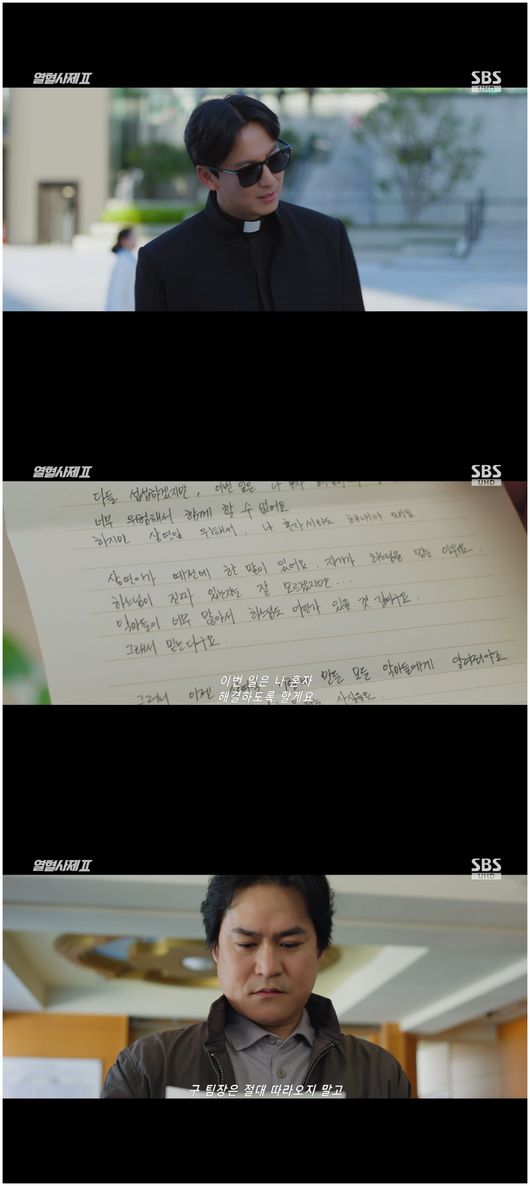 열혈사제Ⅱ
SBS
UHD
열혈사제Ⅱ
SBS
UHD
다들 섭섭하겠지만, 이번 일은 나 혼자
너무 위험해서 함께 할 수 없어요
하지만 상연일 위해서, 나 혼자서라도 해내야 돼요.
상연이가 예전에 한 말이 있어요. 자기가 하느님을 믿는 이유요.
하느님이 진짜 있는지는 잘 모르겠지만...
악마들이 너무 많아서 하느님도 어딘가 있을 것 같다구요.
그래서 믿는다구요.
그러니 이젠 만든 모든 악마들에게 알려줘야죠
사실을요.
이번 일은 나 혼자
해결하도록 할게요
열혈사제Ⅱ
SBS
UHD
구 팀장은 절대 따라오지 말고